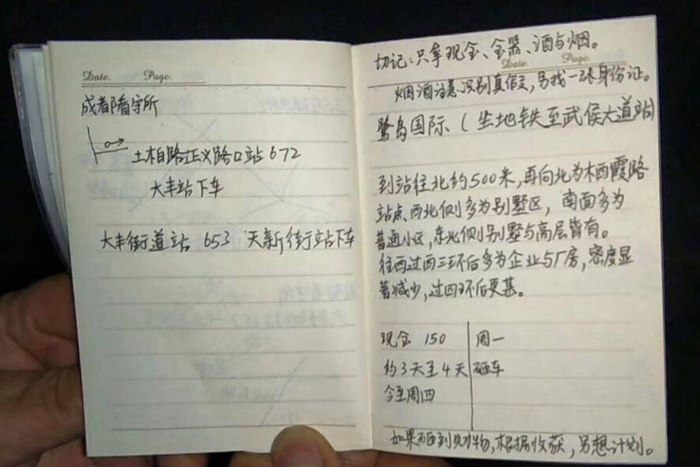 Date. Page.
成都看守所
土柏路正义路口站 672
大丰站下车
大丰街道站 653 天新街站下车
切记:只拿现金、金器、酒与烟。
Date. Page.
烟酒注意识别真假,另找一张身份证。
鹭岛国际(坐地铁至武侯大道站)
到站往北约500米,再向北为木西霞路
站点,西北侧多为别墅区,南面多为
普通小区,东北侧别墅与高层皆有。
往西过西三环后多为企业与厂房,密度显
著减少,过四环后更甚。
现金 150 周一
约3天至4天 砸车
今至周四
如果砸到财物,根据收获,另想计划。